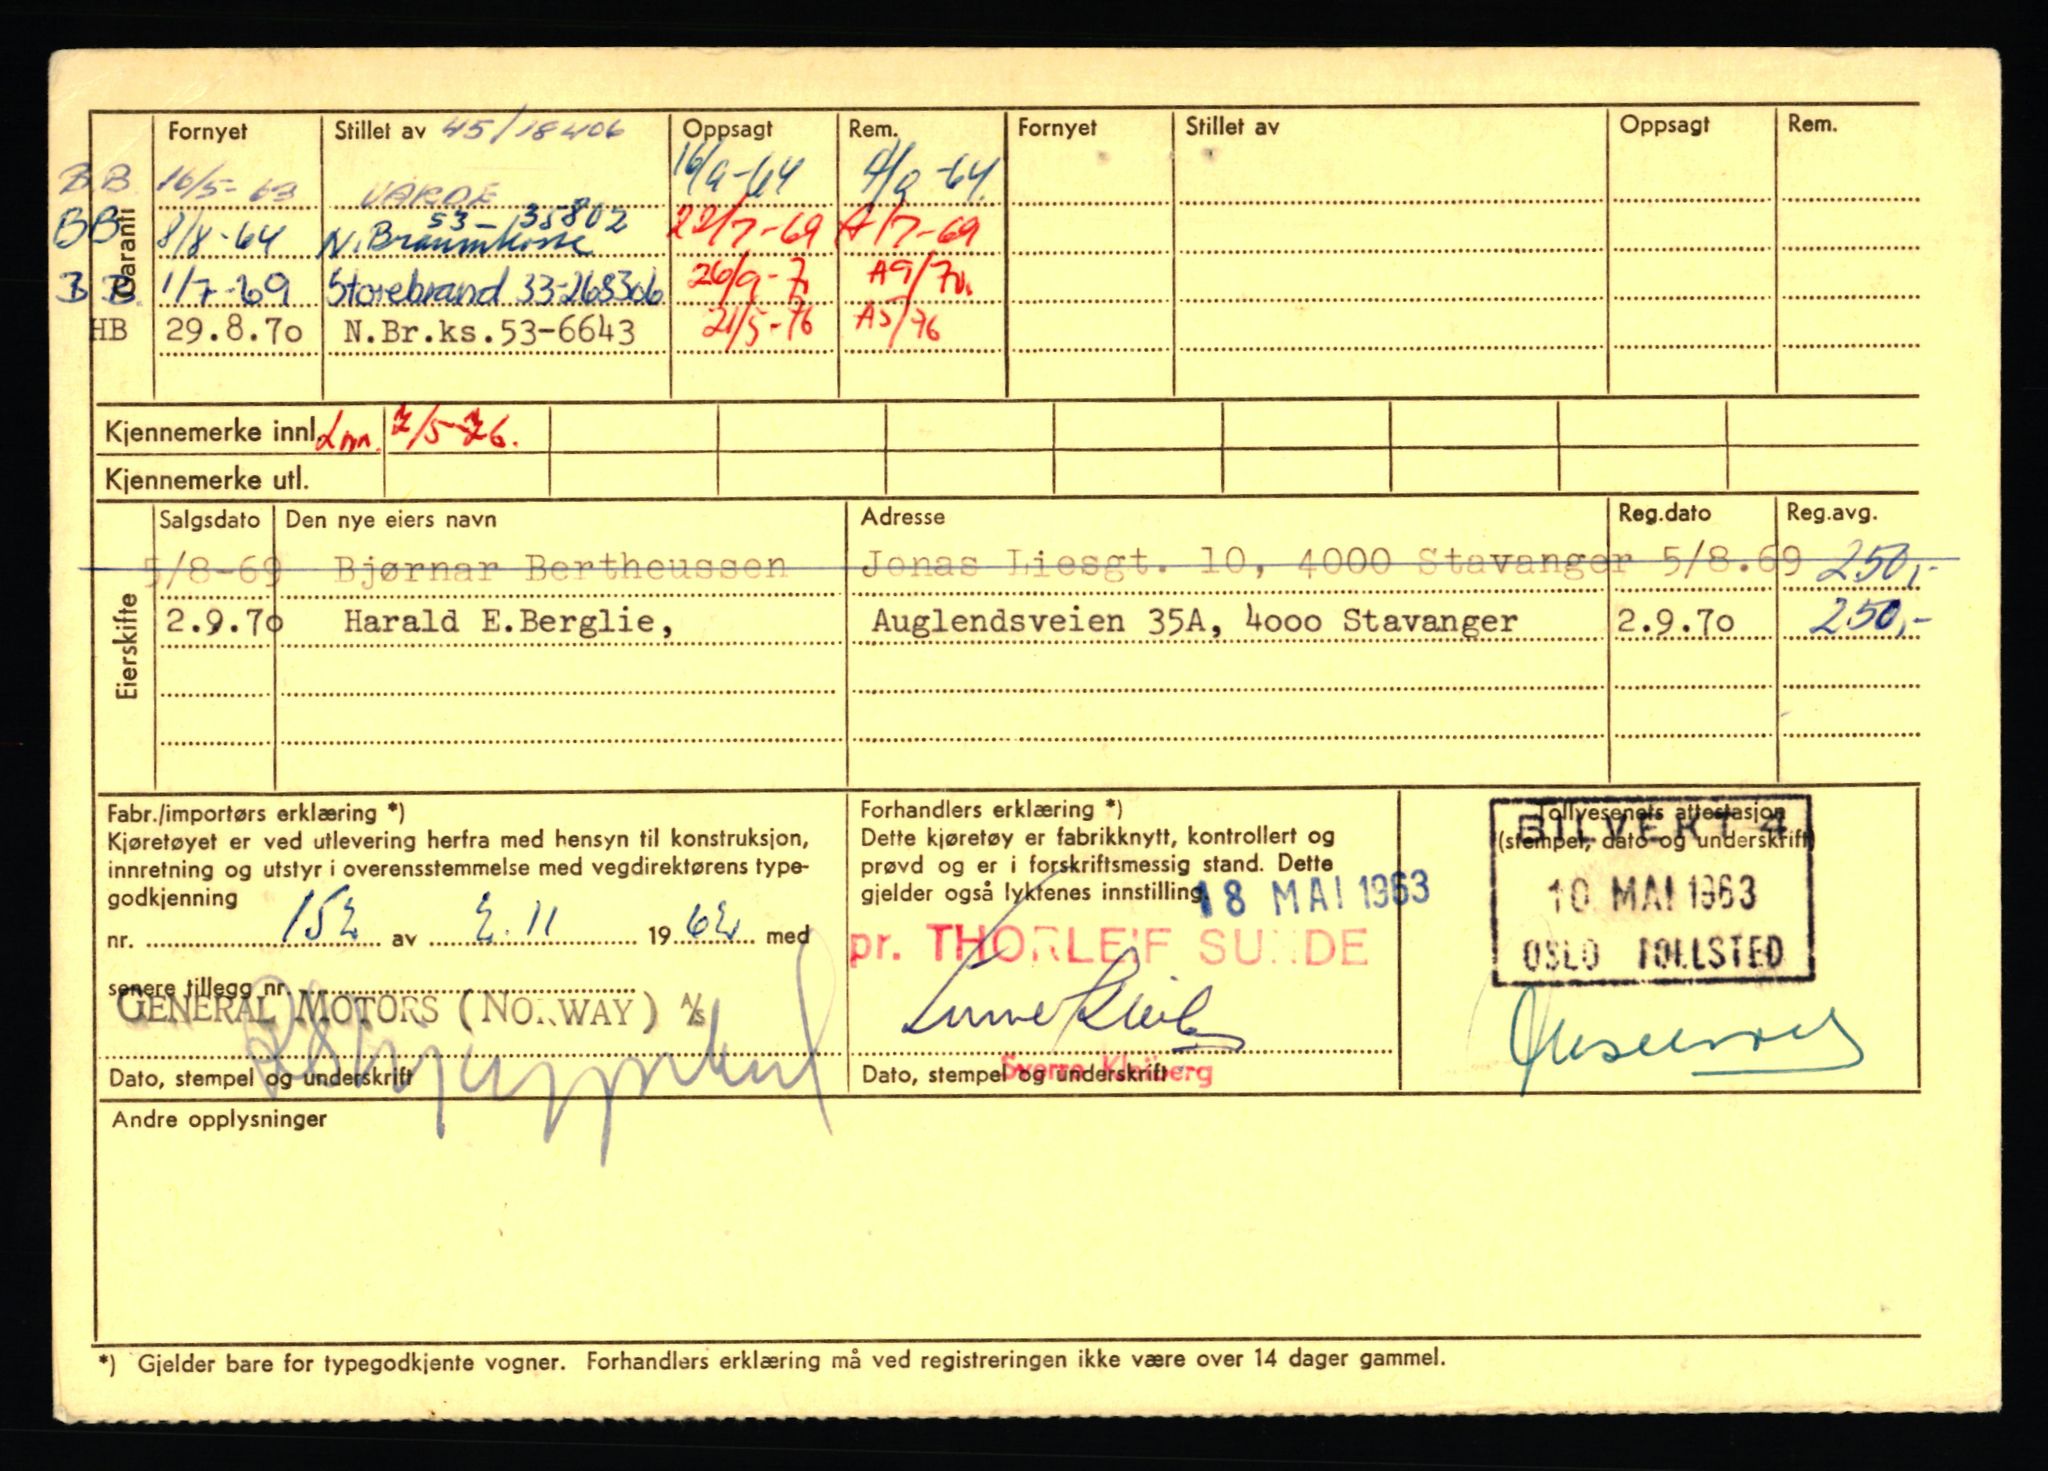 Garanti
Fornyet Stillet av 45/18406 Oppsagt Rem. Fornyet Stillet av Oppsagt Rem.
BB 16/5-63 VARDE 16/9-64 A/9-64.
BB 8/8-64 N. Braunkasse 53-35802 22/7-69 A/7-69
BB. 1/7-69 Storebrand 33-268306 26/9-7 A9/70.
HB 29.8.70 N.Br.ks.53-6643 21/5-76 A5/76
Kjennemerke innl. Inn. 2/5-76.
Kjennemerke utl.
Eierskifte
Salgsdato Den nye eiers navn Adresse Reg.dato Reg.avg.
5/8-69 Bjørnar Bertheussen Jonas Liesgt. 10, 4000 Stavanger 5/8.69 250,-
2.9.70 Harald E.Berglie, Auglendsveien 35A, 4000 Stavanger 2.9.70 250,-
Fabr./importørs erklæring *)
Kjøretøyet er ved utlevering herfra med hensyn til konstruksjon,
innretning og utstyr i overensstemmelse med vegdirektørens type-
godkjenning
nr. 152 av 2.11 1962 med
senere tillegg nr.
GENERAL MOTORS (NORWAY) A/S
Dato, stempel og underskrift
Forhandlers erklæring *)
Dette kjøretøy er fabrikknytt, kontrollert og
prøvd og er i forskriftsmessig stand. Dette
gjelder også lyktenes innstilling
18 MAI 1963
pr. THORLEIF SUNDE
Sverre Kleiberg
Dato, stempel og underskrift
Tollvesenets attestasjon
(stempel, dato og underskrift)
BILVERK 4
10 MAI 1963
OSLO TOLLSTED
Andre opplysninger
*) Gjelder bare for typegodkjente vogner. Forhandlers erklæring må ved registreringen ikke være over 14 dager gammel.